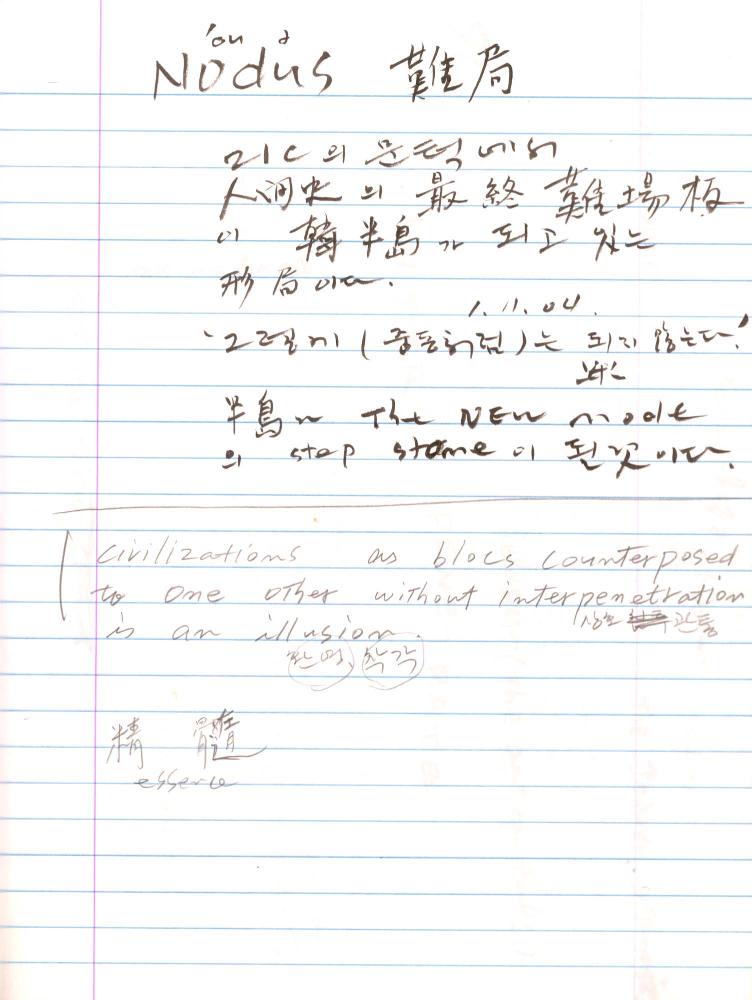 'ou ə
Nodus 難局
21C의 문턱에서
人间史의 最終 難場板
이 韓半島가 되고 있는
形局이다.
1.11.04.
'그렇게 (중동처럼)는 되지 않는다!
半島는 The NEW mode
의 step stone이 될 것이다.
Civilizations as blocs counterposed
to one other without interpenetration
is an illusion.
상호 관통
환영, 착각
精 髓
essence